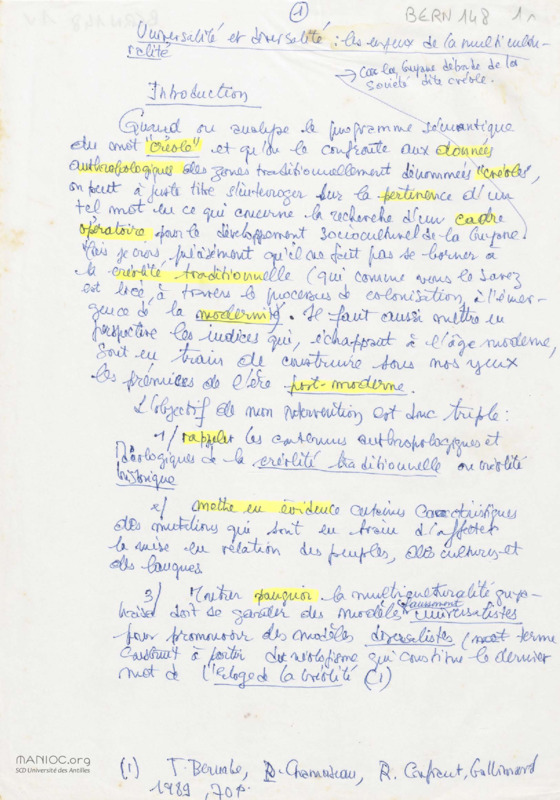 (1)
BERN 148 1r
Universalité et diversalité : les enjeux de la multicultu-
ralité
→ Car la Guyane déborde de la
Société dite créole.
Introduction
Quand on analyse le programme sémantique
du mot "créole" et qu'on le confronte aux données
anthropologiques des zones traditionnellement dénommées "créoles",
on peut à juste titre s'interroger sur la pertinence d'un
tel mot en ce qui concerne la recherche d'un cadre
opératoire pour le développement socioculturel de la Guyane.
Mais je crois, précisément qu'il ne faut pas se borner à
la créolité traditionnelle (qui comme vous le savez
est liée, à travers le processus de colonisation, à l'émer-
gence de la modernité). Il faut aussi mettre en
perspective les indices qui, échappant à l'âge moderne,
sont en train de construire sous nos yeux
les prémices de l'ère post-moderne.
L'objectif de mon intervention est donc triple :
1/ rappeler les contenus anthropologiques et
idéologiques de la créolité traditionnelle ou créolité
historique
2/ mettre en évidence certaines caractéristiques
des mutations qui sont en train d'affecter
la mise en relation des peuples, des cultures et
des langues
3/ Montrer pourquoi la multiculturalité guya-
naise doit se garder des modèles faussement universalistes
pour promouvoir des modèles diversalistes (mot terme
construit à partir du néologisme qui constitue le dernier
mot de l'"Eloge de la Créolité (1)
(1) J. Bernabé, P. Chamoiseau, R. Confiant, Gallimard
1989, 70 p.
MANIOC.org
SCD Université des Antilles